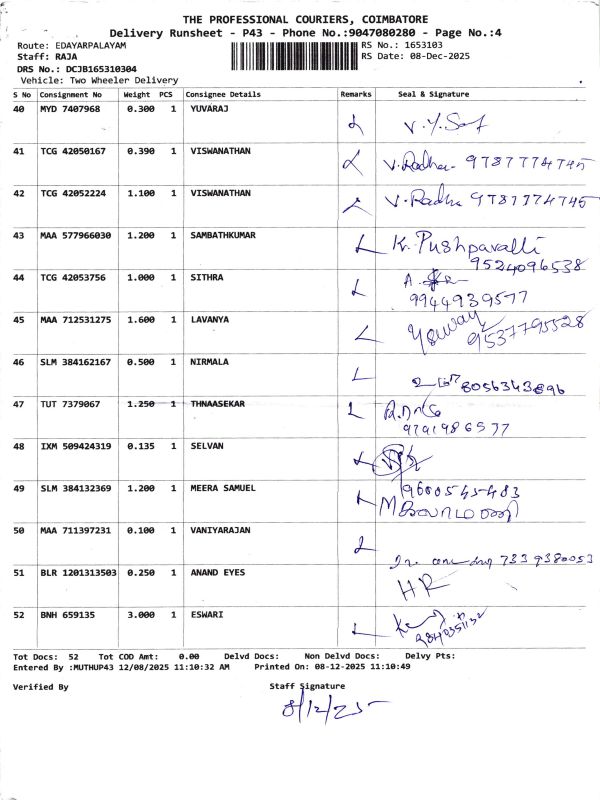 THE PROFESSIONAL COURIERS, COIMBATORE
Delivery Runsheet - P43 - Phone No.:9047080280 - Page No.:4
Route: EDAYARPALAYAM RS No.: 1653103
Staff: RAJA RS Date: 08-Dec-2025
DRS No.: DCJB165310304
Vehicle: Two Wheeler Delivery
S No Consignment No Weight PCS Consignee Details Remarks Seal & Signature
40 MYD 7407968 0.300 1 YUVARAJ
41 TCG 42050167 0.390 1 VISWANATHAN V. Radha 9787774745
42 TCG 42052224 1.100 1 VISWANATHAN V. Radha 9787774745
43 MAA 577966030 1.200 1 SAMBATHKUMAR K. Pushpavalli
9524096538
44 TCG 42053756 1.000 1 SITHRA
9944939577
45 MAA 712531275 1.600 1 LAVANYA
9537795528
46 SLM 384162167 0.500 1 NIRMALA 8056343896
47 TUT 7379067 1.250 1 THNAASEKAR
9791986577
48 IXM 509424319 0.135 1 SELVAN
49 SLM 384132369 1.200 1 MEERA SAMUEL 9600545483
50 MAA 711397231 0.100 1 VANIYARAJAN
7339380053
51 BLR 1201313503 0.250 1 ANAND EYES HR
52 BNH 659135 3.000 1 ESWARI
Tot Docs: 52 Tot COD Amt: 0.00 Delvd Docs: Non Delvd Docs: Delvy Pts:
Entered By :MUTHUP43 12/08/2025 11:10:32 AM Printed On: 08-12-2025 11:10:49
Verified By Staff Signature
8/12/25